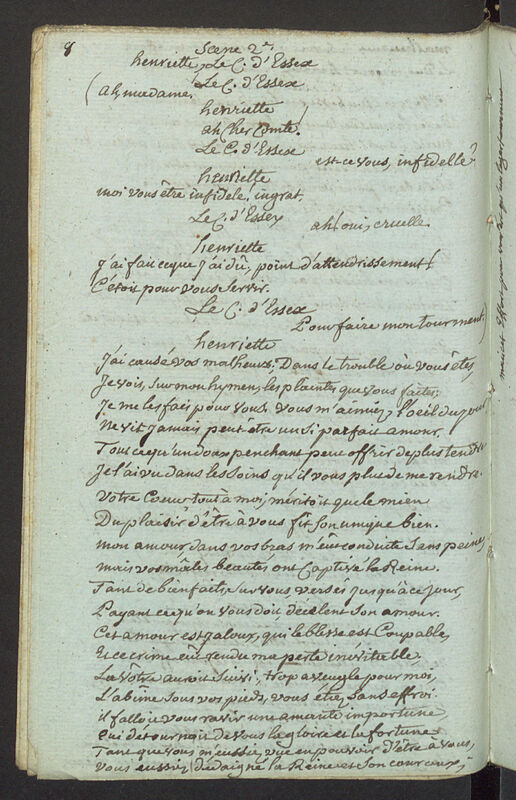 8
Scene 2.e
henriette, Le C. d'Essex
Le C. d'Essex
(ah, madame!
henriette
ah! Cher Comte!
Le C. d'Essex
est-ce vous, infidelle?
henriette
moi vous être infidele, ingrat,
Le C. d'Essex
ah! oui, cruelle
henriette
j'ai fait ce que j'ai dû, point d'attendrissement!
C'étoit pour vous servir.
Le C. d'Essex
Pour faire mon tourment)
henriette
J'ai causé vos malheurs; Dans le trouble où vous êtes,
Je vois, sur mon hymen, les plaintes que vous faites;
Je me les fais pour vous. vous m'aimiez, l'oeil du jour
Ne vit jamais peut être un si parfait amour.
Tout ce qu'un doux penchant peut offrir de plus tendre
Je l'ai vu dans les soins qu'il vous plut de me rendre.
Votre Coeur tout à moi, méritoit que le mien
Du plaisir d'être à vous fît son unique bien.
mon amour dans vos bras m'eût conduite sans peine,
mais vos mâles beautés ont Captivé la Reine.
Tant de bienfaits, sur vous versés jusqu'à ce jour,
Payant ce qu'on vous doit, décelent son amour.
Cet amour est jaloux, qui le blesse est Coupable,
Et ce crime eût rendu ma perte inévitable,
La vôtre auroit suivi; trop aveugle pour moi,
L'abîme sous vos pieds, vous étiez sans effroi.
il falloit vous ravir une amante importune,
qui détournoit de vous la gloire et la fortune,
Tant que vous m'eussiez vue en pouvoir d'être à vous,
Vous eussiez dédaigné la Reine et son courroux;